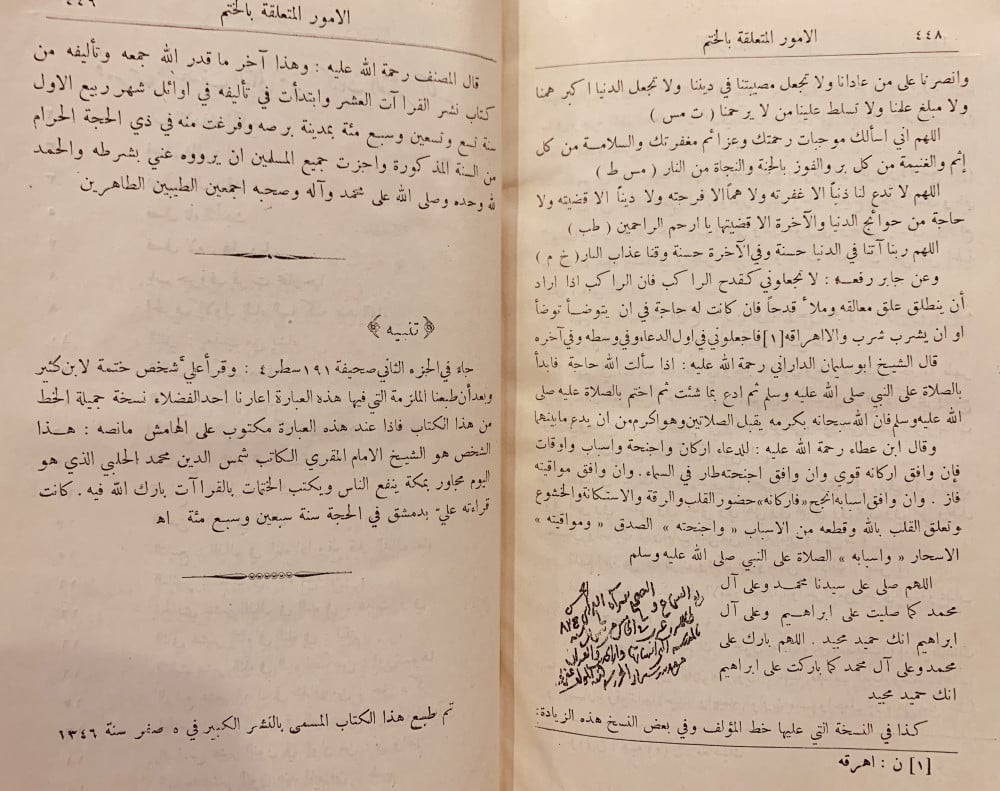 ٤٤٨
الامور المتعلقة بالختم
وانصرنا على من عادانا ولا تجعل مصيبتنا في ديننا ولا تجعل الدنيا اكبر همنا
ولا مبلغ علمنا ولا تسلط علينا من لا يرحمنا ( ت مس )
اللهم اني أسألك موجبات رحمتك وعزائم مغفرتك والسلامة من كل
إثم والغنيمة من كل بر والفوز بالجنة والنجاة من النار ( مس ط )
اللهم لا تدع لنا ذنباً الا غفرته ولا هماً الا فرجته ولا ديناً الا قضيته ولا
حاجة من حوائج الدنيا والآخرة الا قضيتها يا ارحم الراحمين ( طب )
اللهم ربنا آتنا في الدنيا حسنة وفي الآخرة حسنة وقنا عذاب النار ( خ م )
وعن جابر رفعه : لا تجعلوني كقدح الراكب فان الراكب اذا اراد
أن ينطلق علق معالقه وملأ قدحاً فان كانت له حاجة في ان يتوضأ توضأ
او ان يشرب شرب والا اهراقه [١] فاجعلوني في اول الدعاء وفي وسطه وفي آخره
قال الشيخ ابو سليمان الداراني رحمة الله عليه : اذا سألت الله حاجة فابدأ
بالصلاة على النبي صلى الله عليه وسلم ثم ادع بما شئت ثم اختم بالصلاة عليه صلى
الله عليه وسلم فان الله سبحانه بكرمه يقبل الصلاتين وهو اكرم من ان يدع ما بينهما
وقال ابن عطاء رحمة الله عليه : للدعاء اركان واجنحة واسباب واوقات
فإن وافق اركانه قوي وان وافق اجنحته طار في السماء . وان وافق مواقيته
فاز . وان وافق اسبابه انجح « فاركانه » حضور القلب والرقة والاستكانة والخشوع
وتعلق القلب بالله وقطعه من الاسباب « واجنحته » الصدق « ومواقيته »
الاسحار « واسبابه » الصلاة على النبي صلى الله عليه وسلم
اللهم صلى على سيدنا محمد وعلى آل
محمد كما صليت على ابراهيم وعلى آل
ابراهيم انك حميد مجيد . اللهم بارك على
محمد وعلى آل محمد كما باركت على ابراهيم
انك حميد مجيد
كذا في النسخة التي عليها خط المؤلف وفي بعض النسخ هذه الزيادة :
[١] ن : اهرقه
الامور المتعلقة بالختم
قال المصنف رحمة الله عليه : وهذا آخر ما قدر الله جمعه وتأليفه من
كتاب نشر القراآت العشر وابتدأت في تأليفه في اوائل شهر ربيع الاول
سنة تسع وتسعين وسبع مئة بمدينة برصه وفرغت منه في ذي الحجة الحرام
من السنة المذكورة واجزت جميع المسلمين ان يرووه عني بشرطه والحمد
لله وحده وصلى الله على محمد وآله وصحبه اجمعين الطيبين الطاهرين
﴿ تنبيه ﴾
جاء في الجزء الثاني صحيفة ١٩١ سطر ٤ : وقرأ علي شخص ختمة لابن كثير
وبعد أن طبعنا الملزمة التي فيها هذه العبارة اعارنا احد الفضلاء نسخة جميلة الخط
من هذا الكتاب فاذا عند هذه العبارة مكتوب على الهامش مانصه : هذا
الشخص هو الشيخ الامام المقري الكاتب شمس الدين محمد الحلبي الذي هو
اليوم مجاور بمكة ينفع الناس ويكتب الختمات بالقراآت بارك الله فيه . كانت
قراءته عليّ بدمشق في الحجة سنة سبعين وسبع مئة اه
تم طبع هذا الكتاب المسمى بالنشر الكبير في ٥ صفر سنة ١٣٤٦